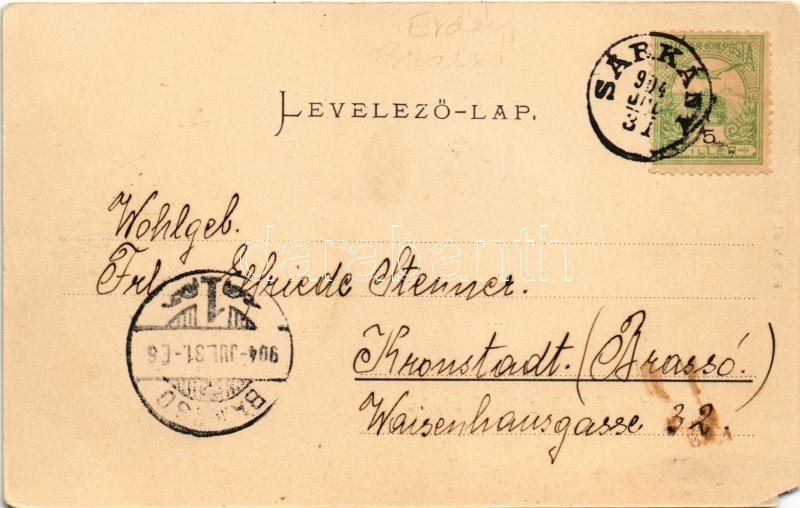 Erdély
Brassó
LEVELEZŐ-LAP.
SÁRKÁNY
904
JUL
31
POSTA
5
FILLÉR
Wohlgeb.
Frl. Elfriede Stenner.
Kronstadt. (Brassó.)
Waisenhausgasse 32.
BRASSÓ
904-JUL.31.-E6
1
darabanth